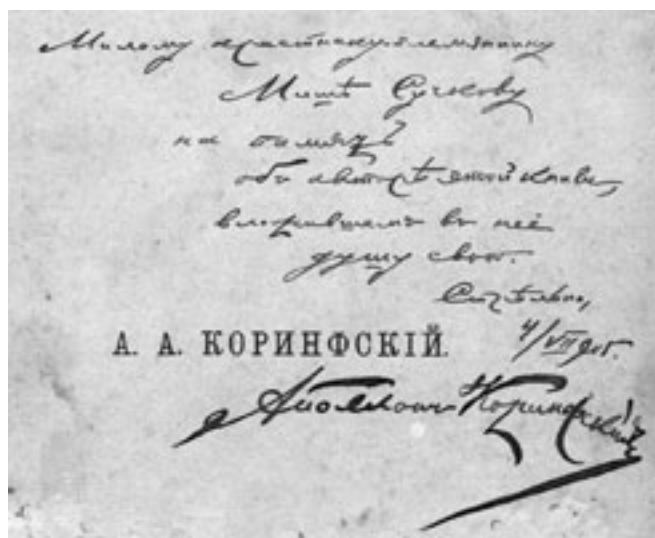 Милому крестнику-племяннику
Мишѣ Сучкову
на память
объ авторѣ этой книги,
вложившемъ въ неё
душу свою.
А. А. КОРИНФСКІЙ.
Аполлонъ Коринфскій